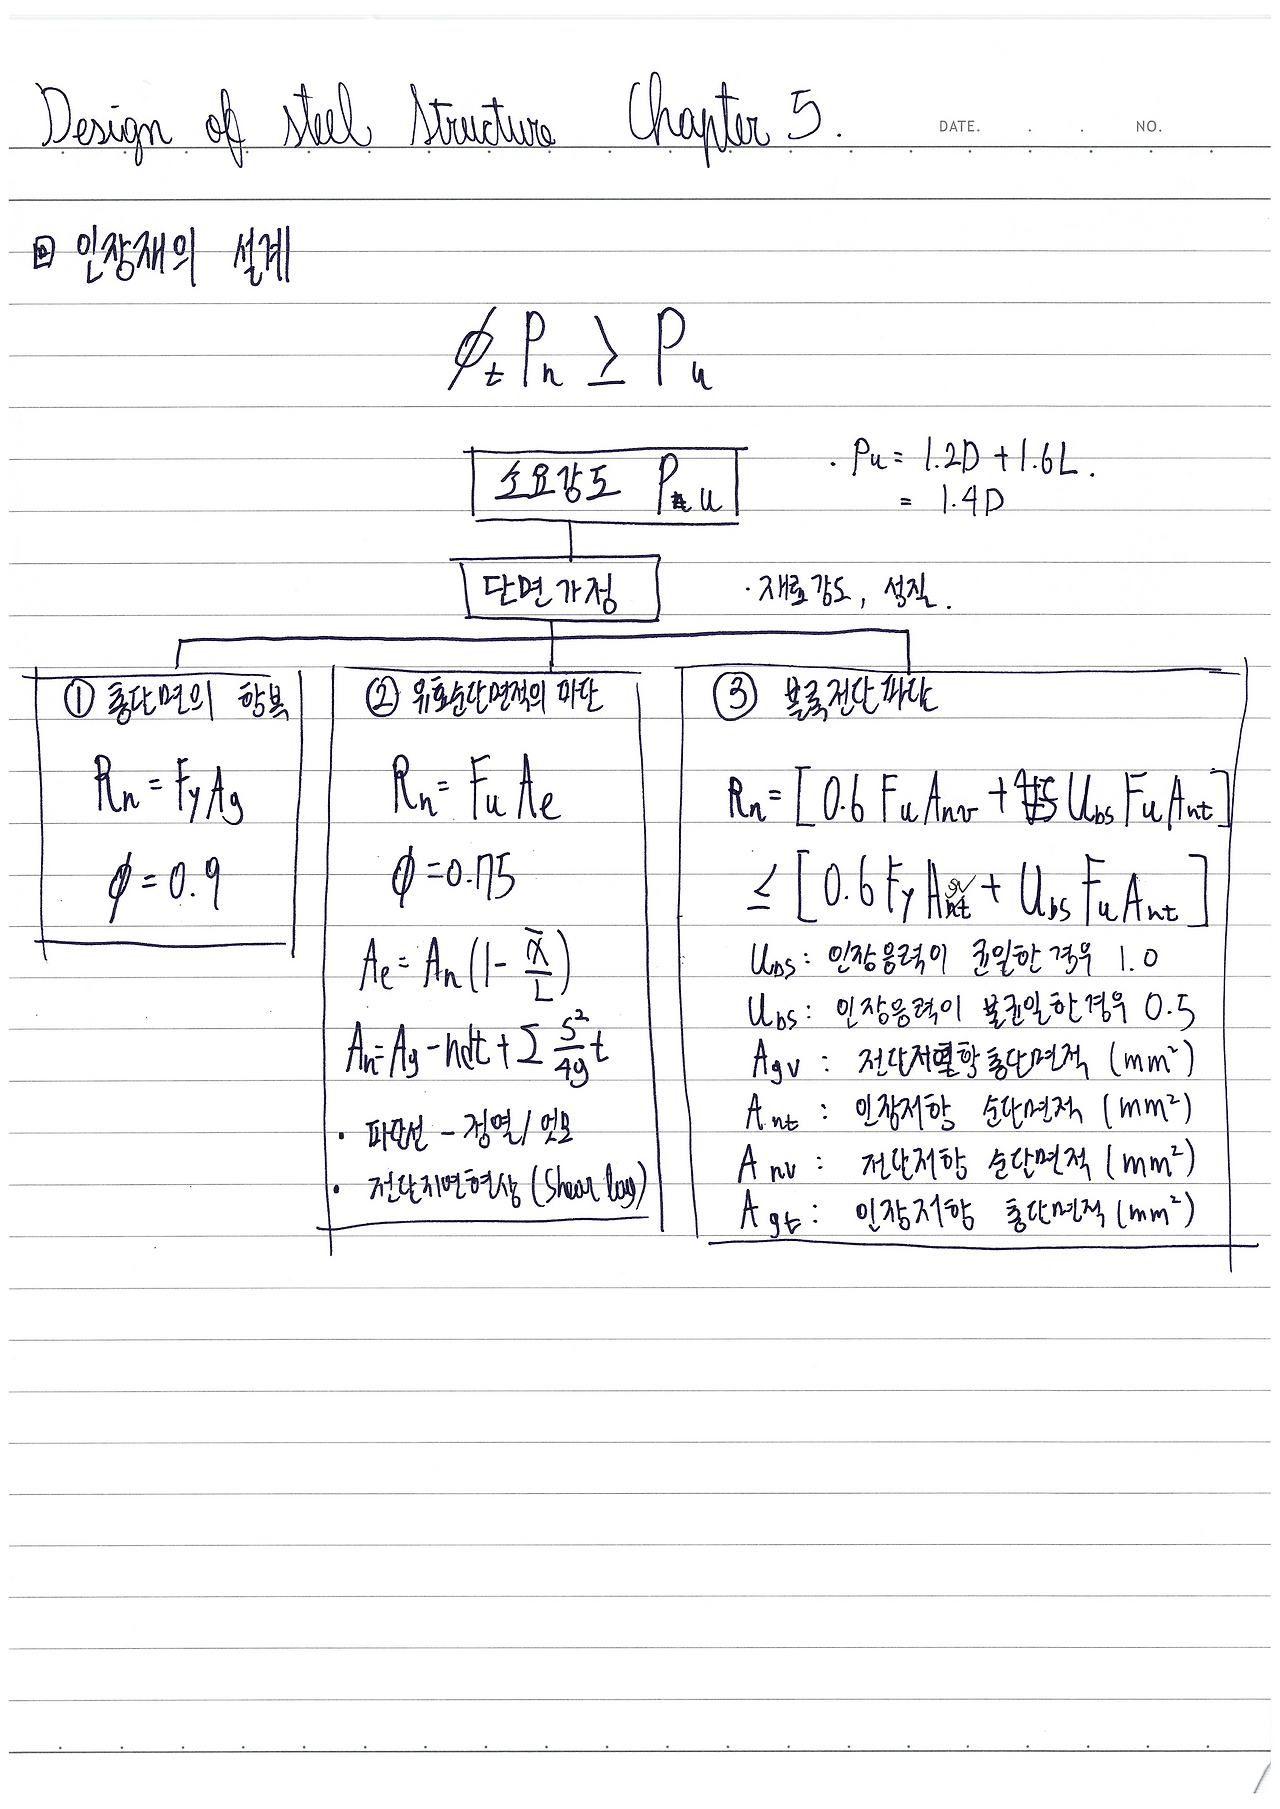 Design of steel structure Chapter 5.
DATE. . . NO.
인장재의 설계
ϕt Pn ≥ Pu
소요강도 Pu
· Pu = 1.2D + 1.6L.
= 1.4D
단면가정
· 재료강도, 성질.
① 총단면의 항복
Rn = Fy Ag
ϕ = 0.9
② 유효순단면적의 파단
Rn = Fu Ae
ϕ = 0.75
Ae = An (1 - x̄/L)
An = Ag - ndt + Σ S²/4g t
· 파단선 - 정열/엇모
· 전단지연현상 (Shear lag)
③ 블록전단파단
Rn = [0.6 Fu Anv + Ubs Fu Ant]
≤ [0.6 Fy Agv + Ubs Fu Ant]
Ubs : 인장응력이 균일한 경우 1.0
Ubs : 인장응력이 불균일한경우 0.5
Agv : 전단저항 총단면적 (mm²)
Ant : 인장저항 순단면적 (mm²)
Anv : 전단저항 순단면적 (mm²)
Agt : 인장저항 총단면적 (mm²)